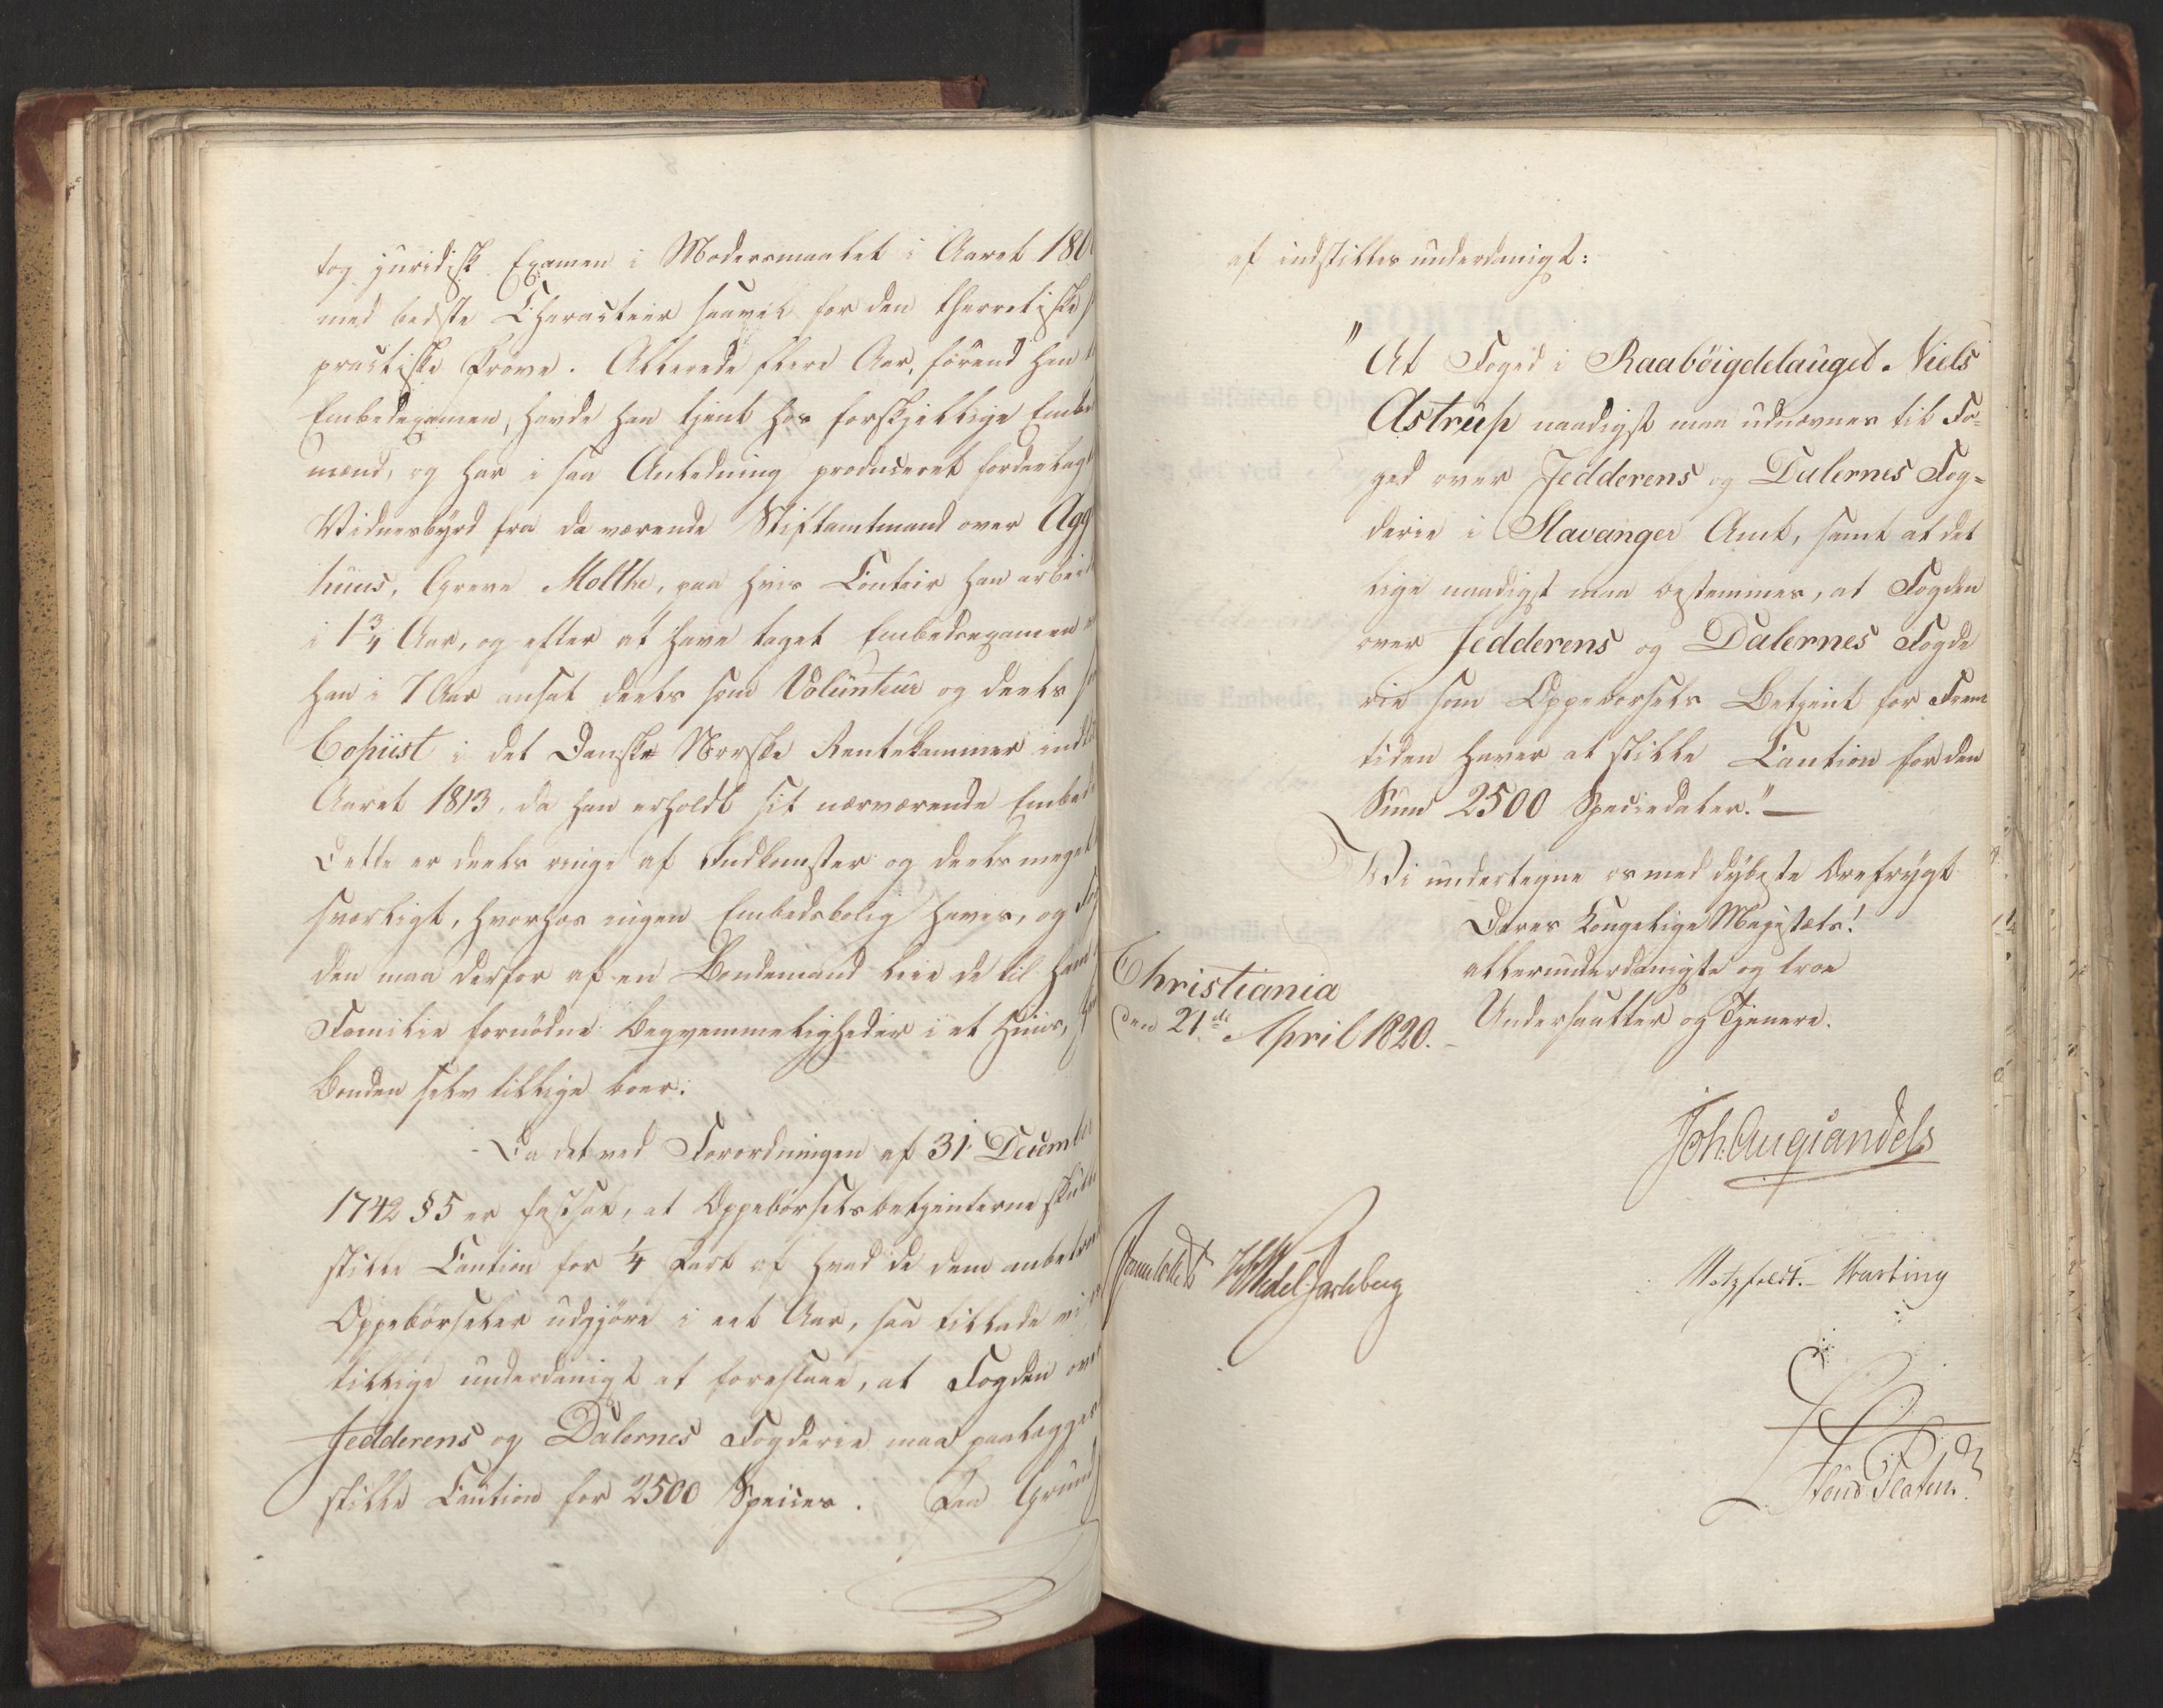 tog juridisk Examen i Modersmaalet i Aaret 180
med bedste Characteer saavel for den theoretiske s
practiske Prøve. Allerede flere Aar, førend han t
Embedexamen, havde han tjent hos forskjellige Embe
mænd, og har i saa Anledning produceret fordeelagt
Vidnesbyrd fra da værende Stiftamtmand over Agg
huus, Greve Molthe, paa hvis Contoir han arbeid
i 1 3/4 Aar, og efter at have taget Embedsexamen
han i 7 Aar ansat deels som Volunteur og deels
Copiist i det Danske Norske Rentekammer indtil
Aaret 1813, da han erholdt sit nærværende Embed
Dette er deels ringe af Indkomster og deels meget
sværligt, hvorhos ingen Embedsbolig haves, og Fog
den maa derfor af en Bondemand leie de til ham
Familie fornødne Beqvemmeligheder i et Huus,
Bonden selv tillige boer.
Da det ved Forordningen af 31 December
1742 § 5 er fastsat, at Oppebørselsbetjenterne skulle
stille Caution for 1/4 Part af hvad de dem anbetroe
Oppebørseler udgjøre i eet Aar, saa tillade vi
tillige underdanigst at foreslaae, at Fogden over
Jedderens og Dalernes Fogderie maa paalægges
stille Caution for 2500 Species. Paa Grund
af indstilles underdanigst:
"At Foged i Raabøigdelauget Niels
Astrup naadigst maa udnævnes til Fo=
ged over Jedderens og Dalernes Fog=
derie i Stavanger Amt, samt at det
lige naadigst maa bestemmes, at Fogden
over Jedderens og Dalernes Fogde
rie som Oppebørsels Betjent for Frem
tiden haver at stille Caution for den
Sum 2500 Speciedaler."—
Vi undertegne os med dybeste Ærefrygt
Deres Kongelige Majestæts!
allerunderdanigste og troe
Undersaatter og Tjenere.
Christiania
den 21de April 1820.
Joh: Aug: Sandels
Sommerhielm Wedel Jarlsberg
Motzfeldt. Krefting